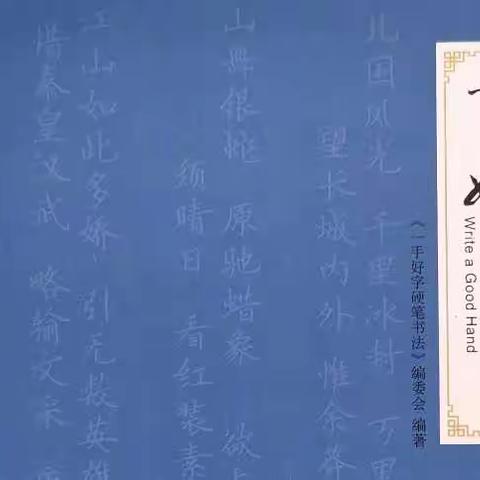 Write a Good Hand
《一手好字硬笔书法》编委会 编著
国风光 千里冰封 万里
望长城内外 惟余莽
山舞银蛇 原驰蜡象 欲
须晴日 看红装素
江山如此多娇、引无数英雄
惜秦皇汉武 略输文采